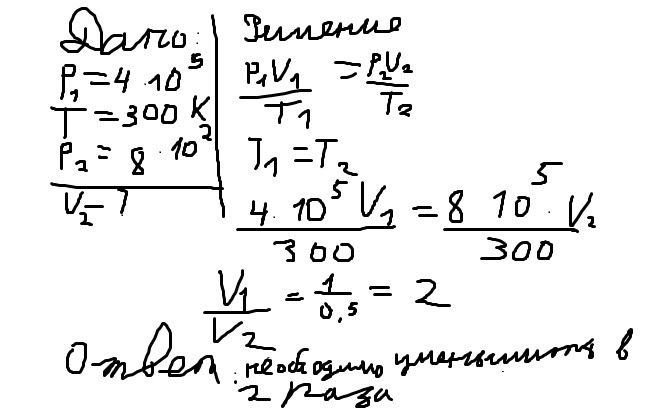 Дано:
P₁ = 4 · 10⁵
T = 300 K
P₂ = 8 · 10²
V₂ – ?
Решение
P₁V₁ / T₁ = P₂V₂ / T₂
T₁ = T₂
4 · 10⁵ V₁ / 300 = 8 10⁵ · V₂ / 300
V₁ / V₂ = 1 / 0,5 = 2
Ответ: необходимо уменьшить в
2 раза